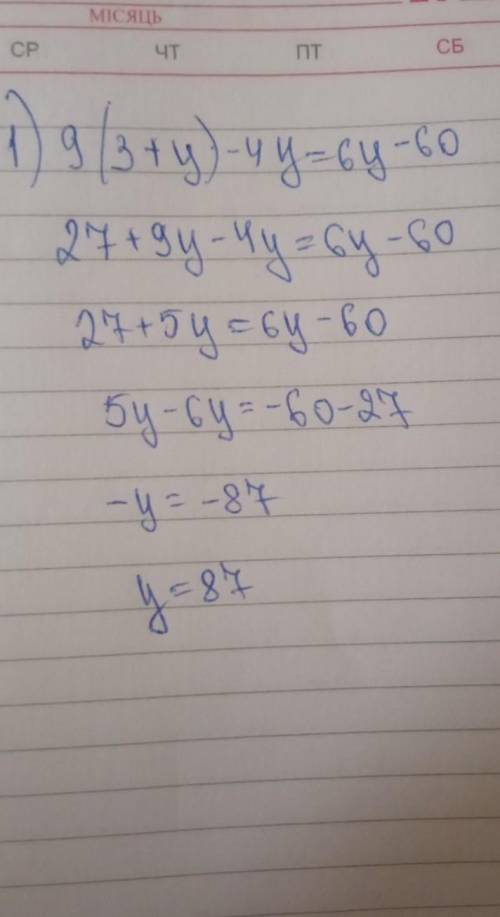 МІСЯЦЬ
СР ЧТ ПТ СБ
1) 9(3+y)-4y=6y-60
27+9y-4y=6y-60
27+5y=6y-60
5y-6y=-60-27
-y=-87
y=87